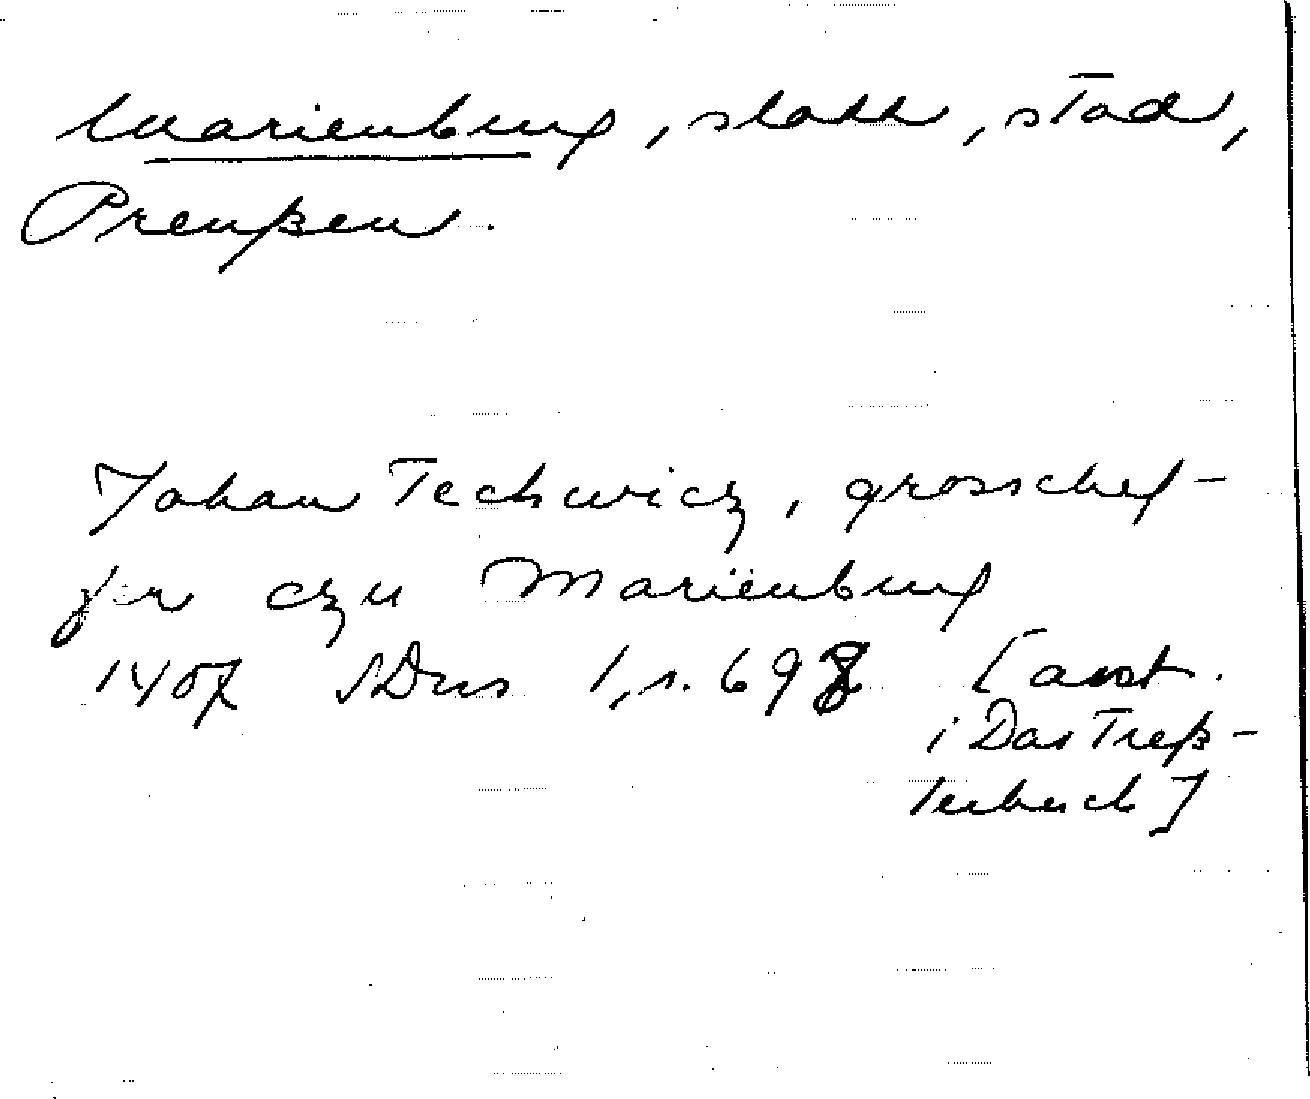 Marienburg, slott, stad,
Preußen.
Johan Techwicz, grosschef-
fer czu Marienburg
1407 SDns 1, s. 698 [avst.
i Das Treß-
lerbuch]